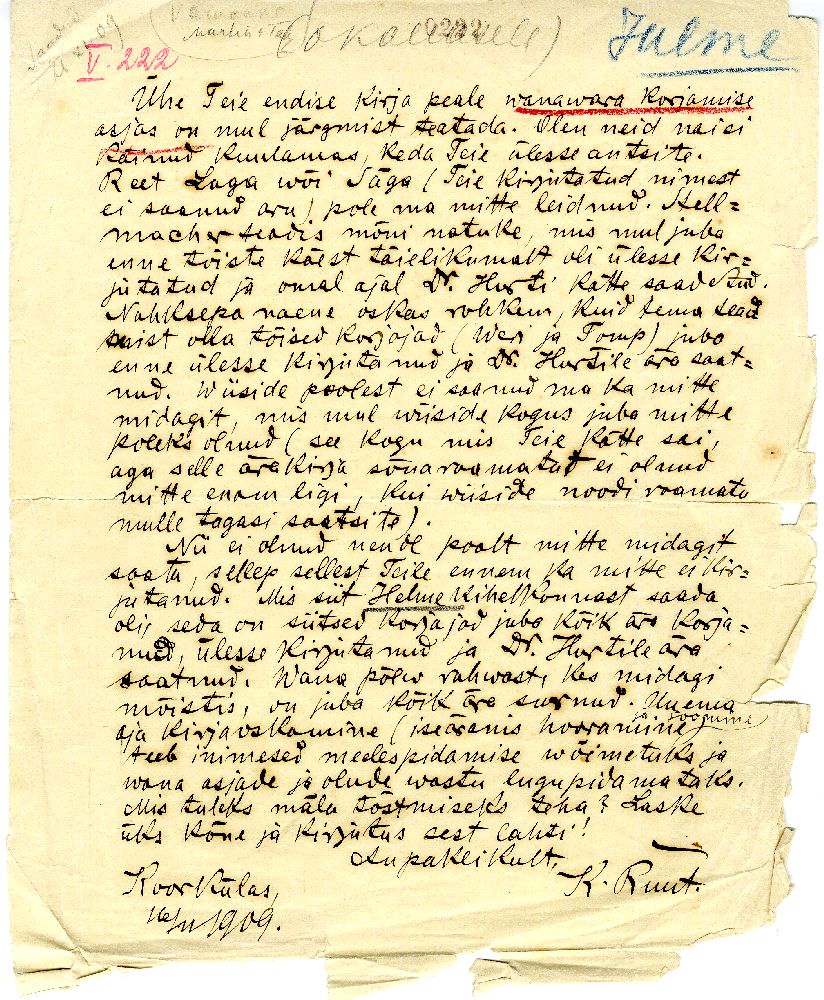 Saadud
V. 222
2222
Helme
Ühe Teie endise kirja peale wanawara korjamise
asjas on mul järgmist teatada. Olen neid naisi
käinud kuulamas, keda Teie ülesse andsite.
Reet Laga wõi Säga (Teie kirjutatud nimest
ei saanud aru) pole ma mitte leidnud. Hell-
macher teadis mõni natuke, mis mul juba
enne tõiste käest täielikumalt oli ülesse kir-
jutatud ja omal ajal Dr. Hurti kätte saadetud.
Nahksepa naene oskas rohkem, kuid tema tead
mist olla tõised korjajad (Weri ja Tomp) juba
enne ülesse kirjutanud ja Dr. Hurtile ära saat-
nud. Wiiside poolest ei saanud ma ka mitte
midagit, mis mul wiiside kogus juba mitte
poleks olnud (see kogu mis Teie kätte sai,
aga selle ärakirja sõnaraamatut ei olnud
mitte enam ligi, kui wiiside noodi raamatu
mulle tagasi saatsite).
Nii ei olnud nende poolt mitte midagit
saata, sellep sellest Teile ennem ka mitte ei kir-
jutanud. Mis siit Helme kihelkonnast saada
oli, seda on siitsed korjajad juba kõik ära korja-
nud, ülesse kirjutanud ja Dr. Hurtile ära
saatnud. Wana põlew rahwast, kes midagi
mõistis, on juba kõik ära surnud. Uuema
aja kirjaoskamine (iseäranis hooramine) ja joomine
teeb inimesed meelespidamise wõimetuks ja
wana asjade ja olude wastu lugupidamatuks.
Mis tuleks mäla tõstmiseks teha? Laske
üks kõne ja kirjutus sest lahti!
Aupaklikult,
K. Ruut.
Koorkülas,
1909.